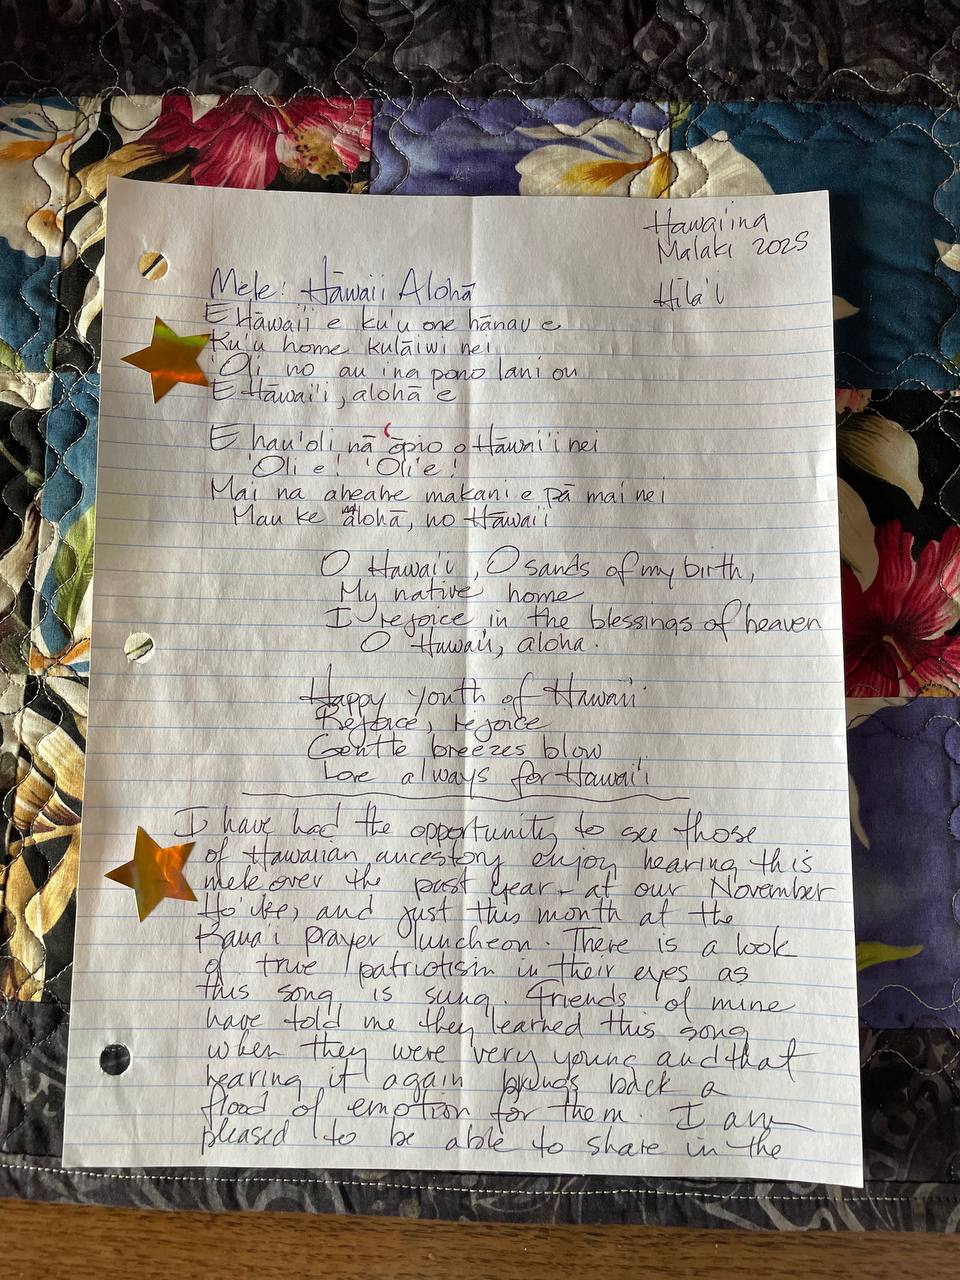 Hawai'ina
Malaki 2025
Hila'i
Mele: Hāwaii Alohā
E Hāwai'i e ku'u one hānau e
Ku'u home kulāiwi nei
'Oli no au ina pono lani ou
E Hāwai'i, alohā e
E hau'oli nā 'ōpio o Hāwai'i nei
'Oli e! 'Oli e!
Mai na aheahe makani e pā mai nei
Mau ke alohā, no Hāwaii
O Hawai'i, O sands of my birth,
My native home
I rejoice in the blessings of heaven
O Hawaii, aloha.
Happy youth of Hawaii
Rejoice, rejoice
Gentle breezes blow
Love always for Hawai'i
I have had the opportunity to see those
of Hawaiian ancestory enjoy hearing this
mele over the past year - at our November
and just this month at the
Kaua'i prayer luncheon. There is a look
of true patriotism in their eyes as
this song is sung. Friends of mine
have told me they learned this song
when they were very young and that
hearing it again brings back a
flood of emotion for them. I am
pleased to be able to share in the